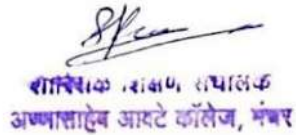 शारिरिक शिक्षण संचालक
अण्णासाहेब आवटे कॉलेज, मंचर